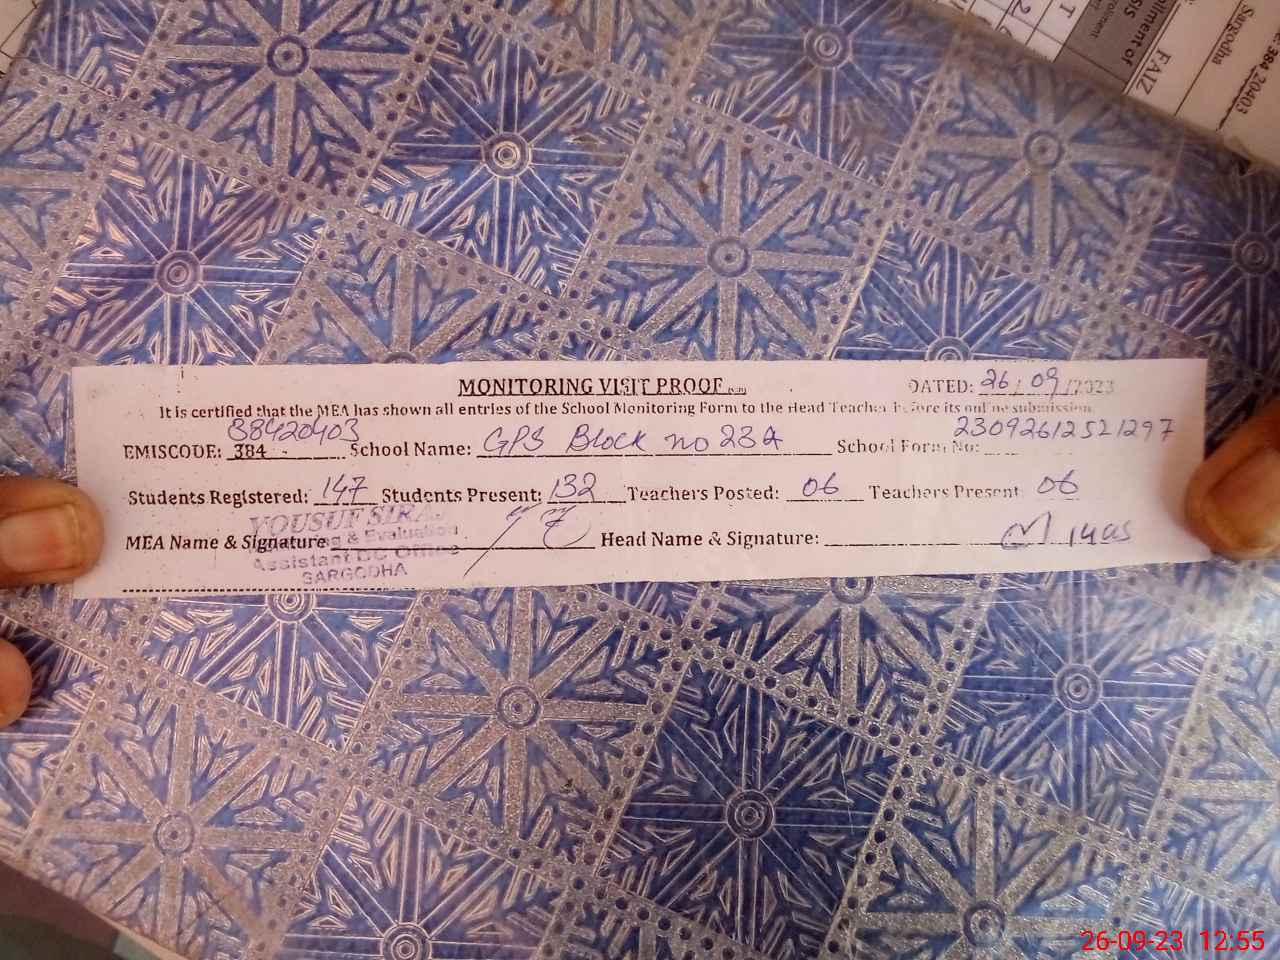 MONITORING VISIT PROOF DATED: 26/09/2023
It is certified that the MEA has shown all entries of the School Monitoring Form to the Head Teacher before its online submission
EMISCODE: 384 38420403 School Name: GPS Block no 23A School Form No: 23092612521297
Students Registered: 147 Students Present: 132 Teachers Posted: 06 Teachers Present 06
MEA Name & Signature Head Name & Signature:
YOUSUF SIRAJ
& Evaluation
Assistant DC Office
SARGODHA
384 20403
Sargodha
FAIZ
26-09-23 12:55